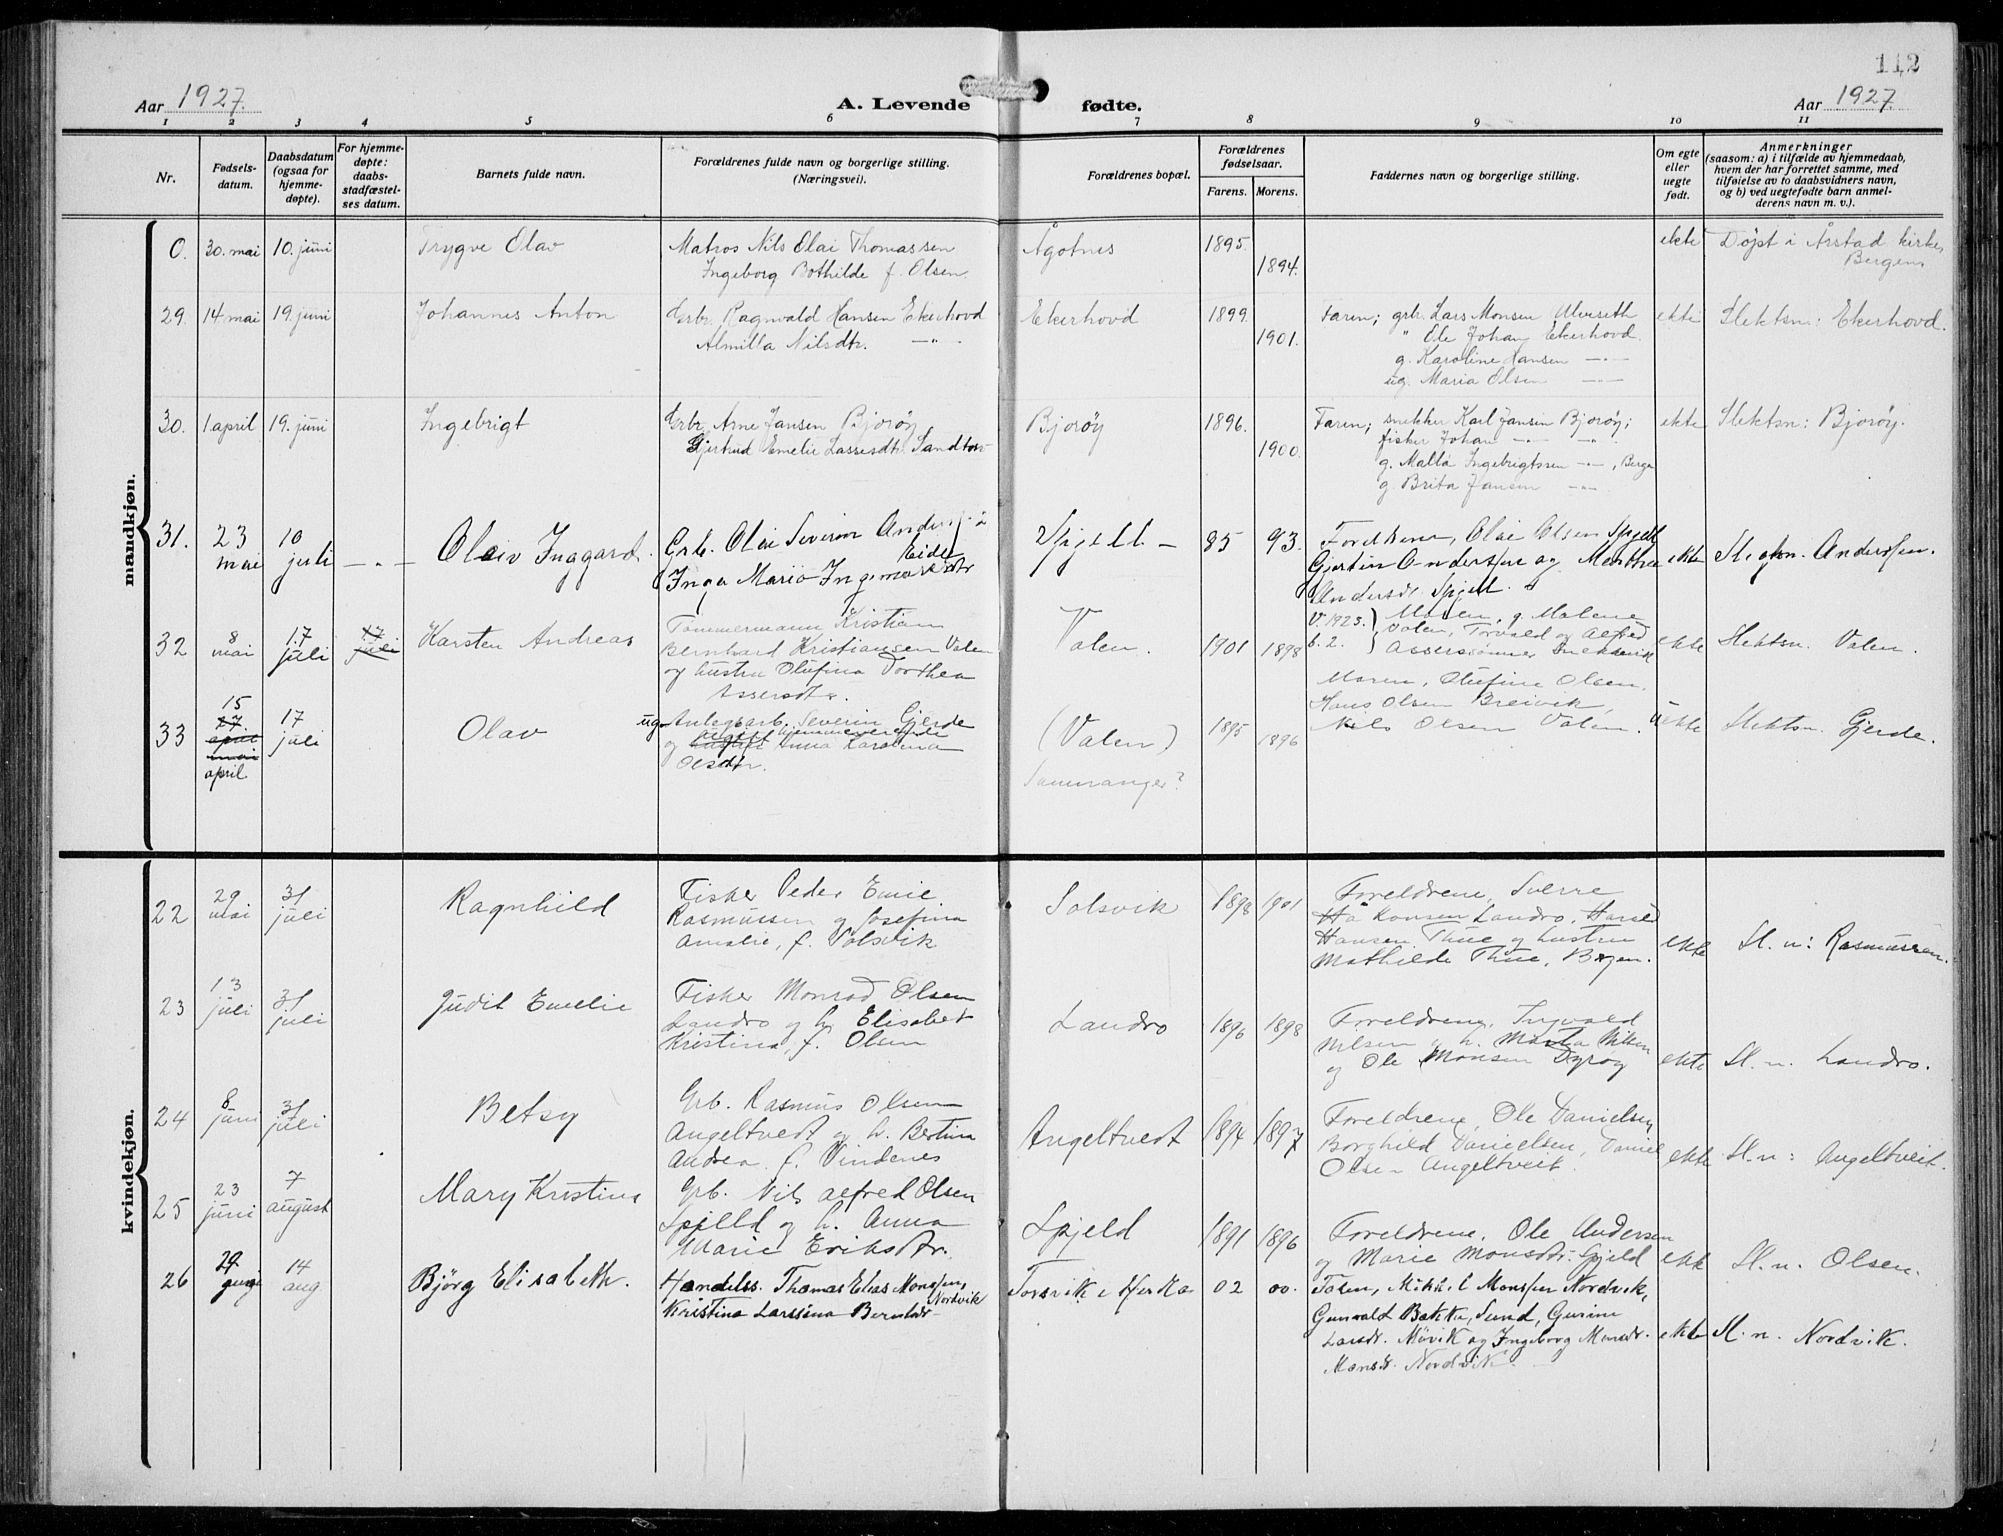 112
Aar 1927.
A. Levende fødte.
Aar 1927.
1 2 3 4 5 6 7 8 9 10 11
Nr.
Fødsels-
datum.
Daabsdatum
(ogsaa for
hjemme-
døpte).
For hjemme-
døpte:
daabs-
stadfæstel-
ses datum.
Barnets fulde navn.
Forældrenes fulde navn og borgerlige stilling.
(Næringsvei).
Forældrenes bopæl.
Forældrenes
fødselsaar.
Farens. Morens.
Faddernes navn og borgerlige stilling.
Om egte
eller
uegte
født.
Anmerkninger
(saasom: a) i tilfælde av hjemmedaab,
hvem der har forrettet samme, med
tilføielse av to daabsvidners navn,
og b) ved uegtefødte barn anmel-
derens navn m. v.).
mandkjøn.
0. 30. mai 10. juni Trygve Olav
Matros Nils Olai Thomassen
Ingeborg Bothilde f. Olsen
Ågotnes 1895 1894.
ekte Døpt i Årstad kirke
Bergen
29. 14 mai 19. juni Johannes Anton
Grbr. Ragnvald Hansen Ekerhovd
Almilla Nilsdtr. —"—
Ekerhovd 1899 1901.
Faren; grb. Lars Monsen Ulveseth
" Ole Johan Ekerhovd.
g. Karoline Hansen —"—
ug. Maria Olsen —"—
ekte Slektsn: Ekerhovd.
30. 1. april 19. juni Ingebrigt
Grbr. Arne Jansen Bjorøy
Gjertrud Emelie Lassesdtr.
Bjorøy 1896. 1900.
Faren; snekker Karl Jansen Bjorøy;
fisker Johan —"— —"—
g. Malla Ingebrigtssen —"—, Berge
g. Brita Jansen —"—
ekte Slektsn: Bjorøy.
31. 23 mai 10 juli —"— Olaiv Inggard.
Grb. Olai Severin
Inga Maria
Spjeld — 85 93.
Foreldrene, Olai Olsen Spjeld
Andersdtr. Spjeld.
ekte Slektn. Anderssen.
32 8 mai 17 juli 17 juli Karsten Andreas
Tømmermann Kristian
Bernhard Kristiansen Valen
og hustru Olufina Dorthea
Assersdtr.
Valen. 1901 1898
V. 1923. b. 2. Moren, g. Malene
Valen, Torvald og Alfred
Asserssønner Snekkevik
ekte Slektsn. Valen.
33 15 17 april mai april 17 juli Olav
ug. Anlegsarb. Severin Gjerde
og Anna Karolina
Olsdtr.
(Valen)
Samnanger?
1895 1896
Moren, Olufine Olsen,
Hans Olsen Breivik,
Nils Olsen Valen.
uekte Slektsn. Gjerde.
kvindekjøn.
22 29 mai 31 juli Ragnhild
Fisker Peder Emil
Rasmussen og Josefina
Amalie, f. Solsvik
Solsvik 1898 1901
Foreldrene, Sverre
Håkonsen Landro, Harald
Hansen Thue og hustru
Mathilde Thue, Bergen.
ekte Sl. n: Rasmussen.
23 13 juli 31 juli Judit Emelie
Fisker Monrad Olsen
Landro og h. Elisabet
Kristina, f. Olsen
Landro 1896 1898
Foreldrene, Ingvald
Nilsen og h. Marta Nilsen
og Ole Monsen Dyrøy
ekte Sl. n. Landro.
24 8 juni 31 juli Betsy
Grb. Rasmus Olsen
Angeltvedt og h. Bertina
Andrea f. Vindenes
Angeltvedt 1894 1897
Foreldrene, Ole Danielsen,
Borghild Danielsen, Daniel
Olsen Angeltveit.
ekte Sl. n: Angeltveit.
25 23 juni 7 august Mary Kristina
Grb. Nils Alfred Olsen
Spjeld og h. Anna
Marie Eriksdtr.
Spjeld 1891 1896
Foreldrene, Ole Andersen
og Marie Monsdtr. Spjeld
ekte Sl. n. Olsen.
26 29 juni 14 aug Bjørg Elisabeth.
Handelss. Thomas Elias Monssen,
Nordvik
Kristina Larssina
Torsvik i Herdla 02 00.
Faren, Mikkel Monssen Nordvik,
Gunvald Bakke, Sund, Gurine
Larsdr. Møvik og Ingeborg Monsdr.
Monsdr. Nordvik.
ekte Sl. n. Nordvik.